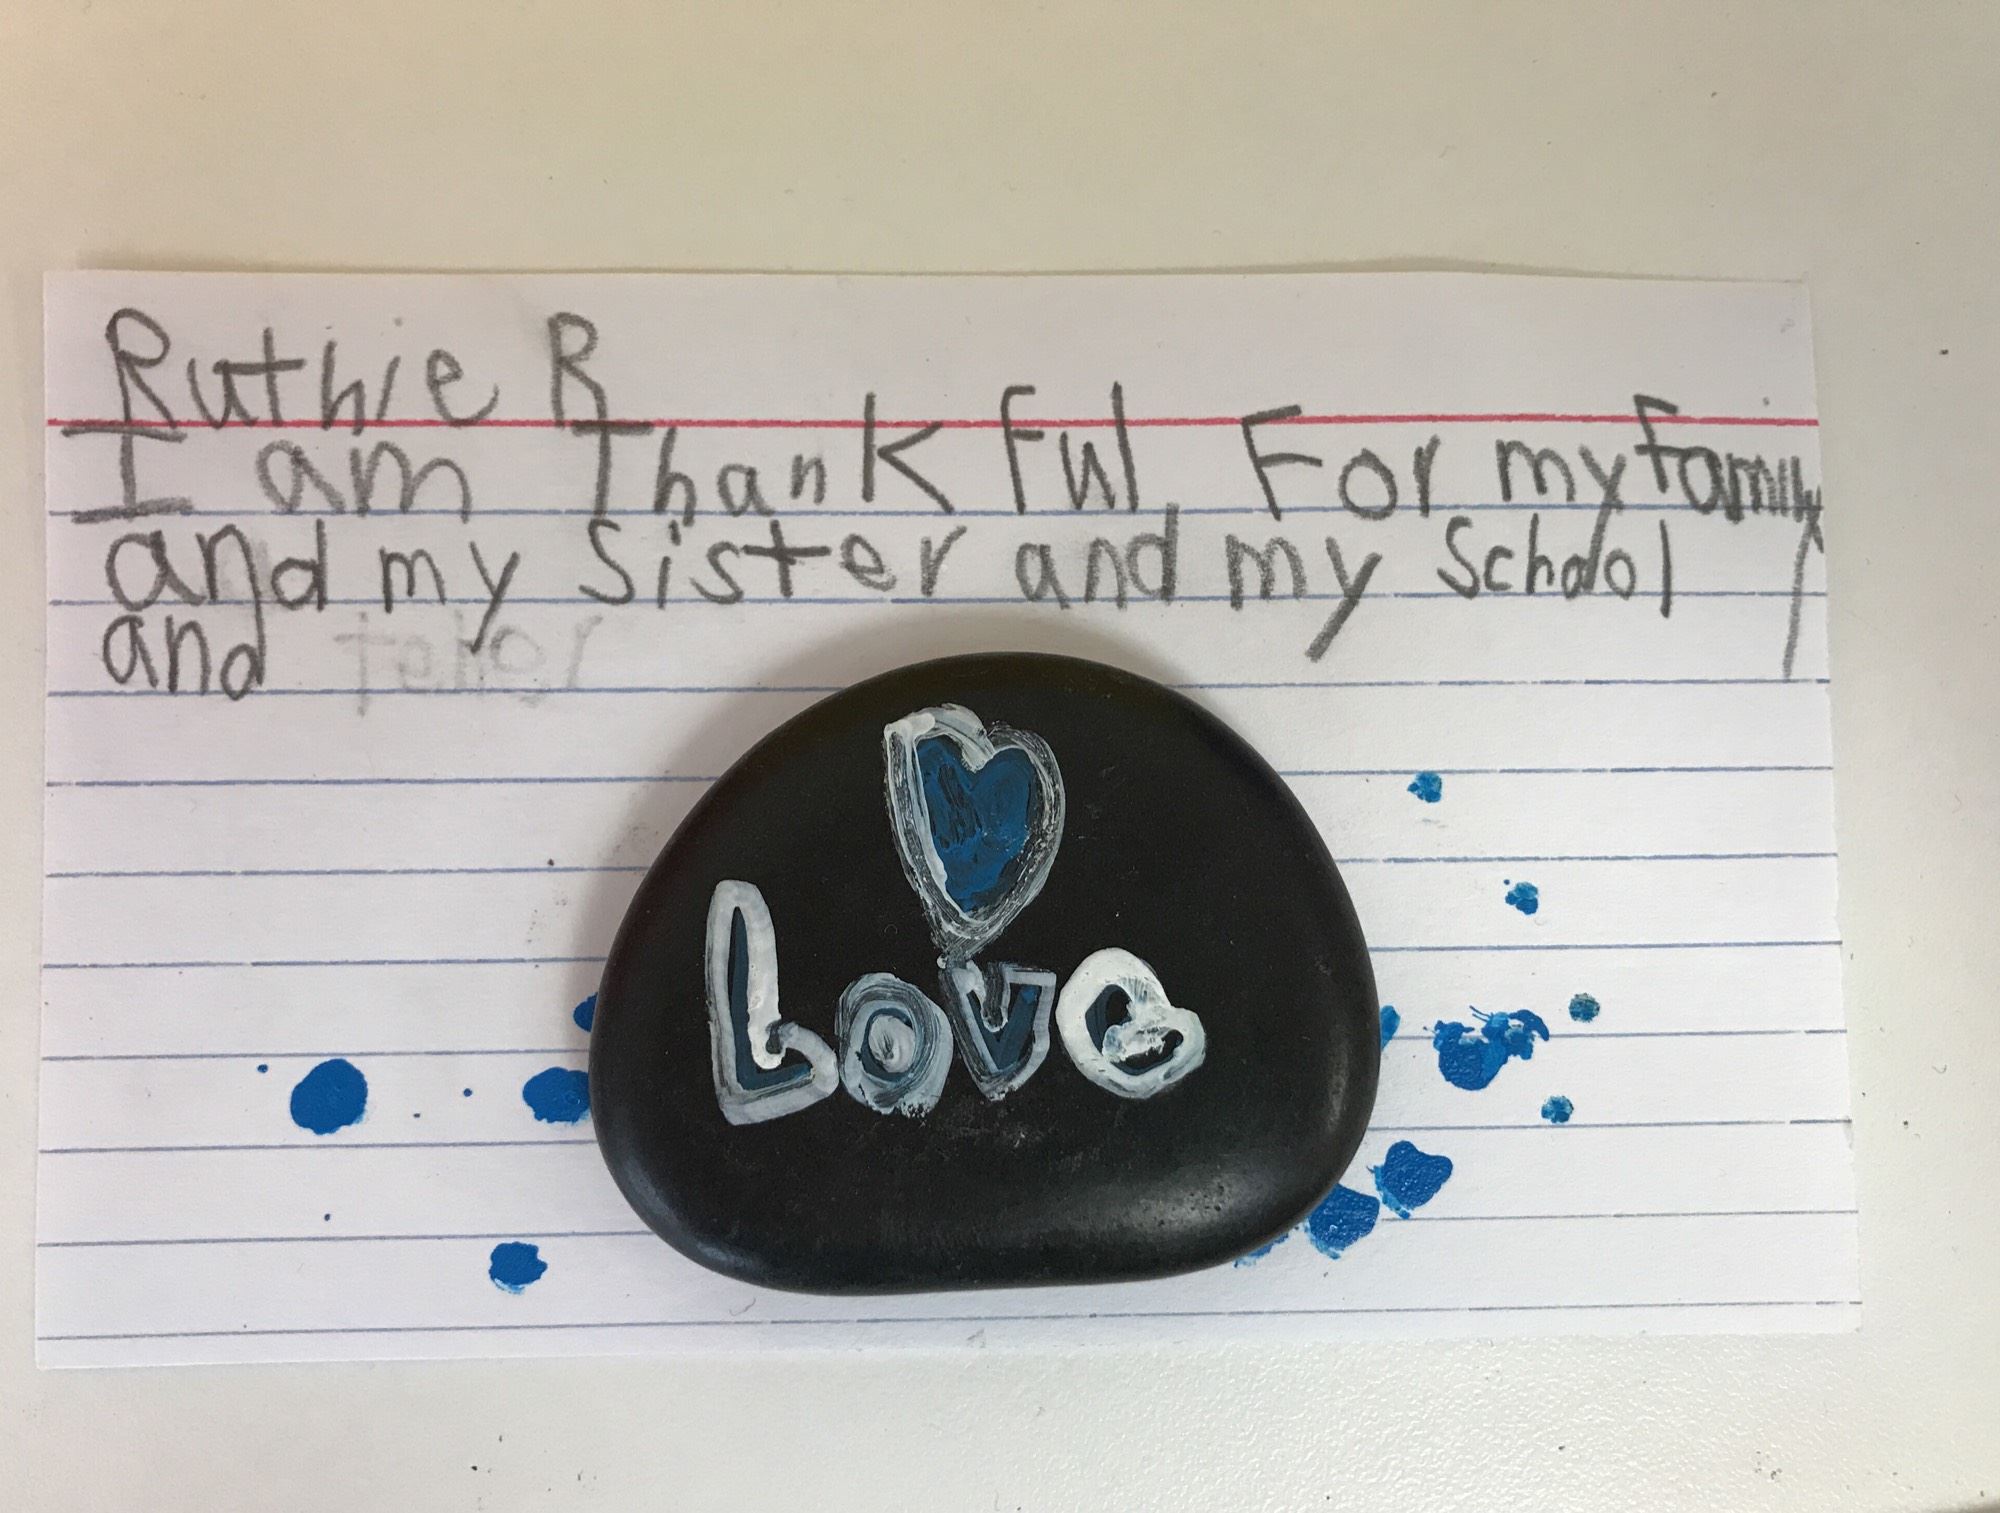 Ruthie R
I am Thankful For my family
and my Sister and my School
and
Love